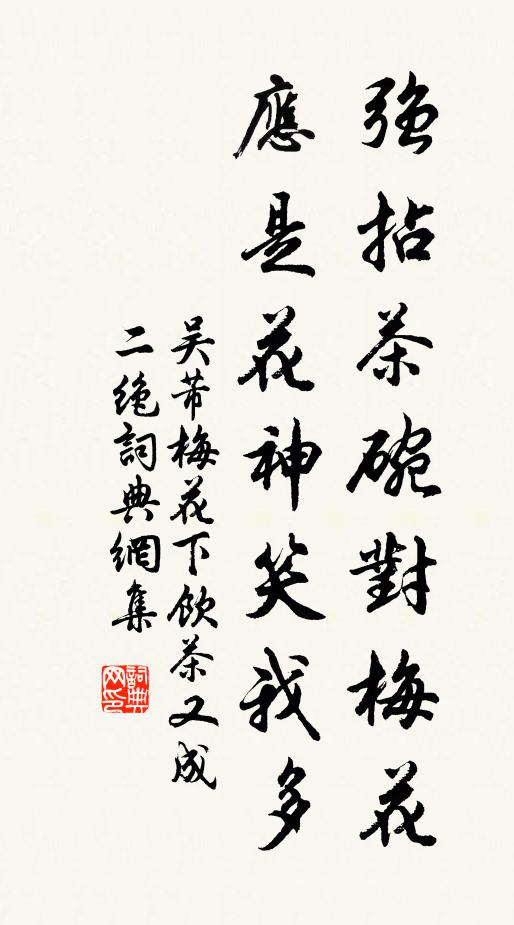 强拈茶碗對梅花
應是花神笑我多
吴芾梅花下飲茶又成
二絶詞典網集
詞典
网印